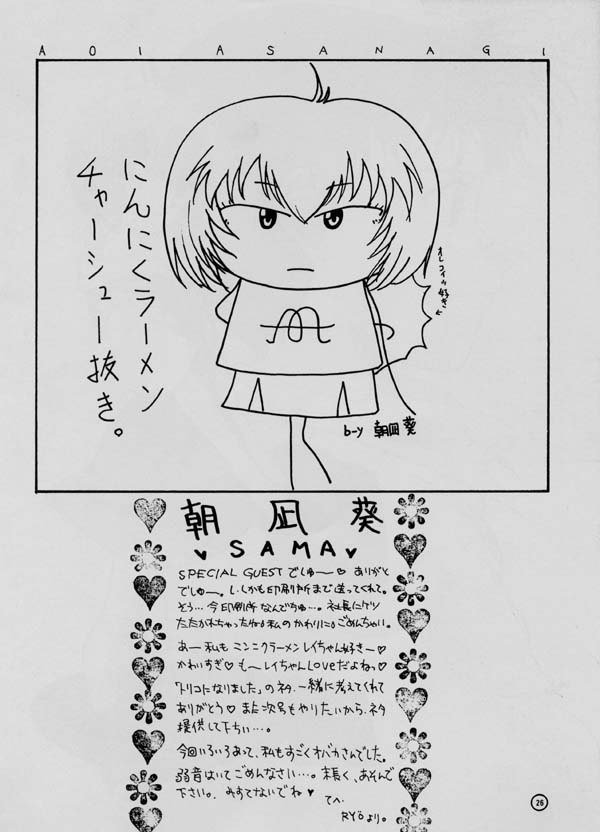 AOI ASANAGI
にんにくラーメン
チャーシュー抜き。
オレコイツ好き
b-y 朝凪 葵
朝 凪 葵
♥ SAMA ♥
SPECIAL GUEST でしゅ〜♡ ありがと
でしゅ〜。しかも印刷所まで送ってくれて。
そう…今印刷所なんでちゅ…。社長にケツ
たたかれちゃったね 私のかわりに ごめんちゃい。
あー私も ニンニクラーメンレイちゃん好き〜♡
かわいすぎ♡ も〜レイちゃんLoveだよねっ♡
「トリコになりました」のネタ、一緒に考えてくれて
ありがとう♡ また次号もやりたいから、ネタ
提供して下ちい…。
今回いろいろあって、私もすごくオバカさんでした。
弱音はいてごめんなさい…。末長く、あそんで
下さい。みすてないでね♥
てへ
RYOより。
26